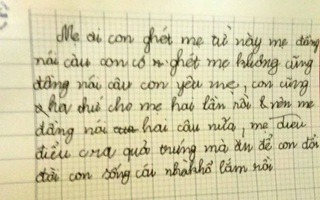 Mẹ ơi con ghét mẹ từ này mẹ đừng
nói câu con có ghét mẹ không cũng
đừng nói câu con yêu mẹ, con cũng
hơ chữ cho mẹ hai lần rồi nên mẹ
đừng nói hai câu nữa, mẹ
điều ra quả trứng mà ăn để con đổi
đời con sống cái nhà khổ lắm rồi